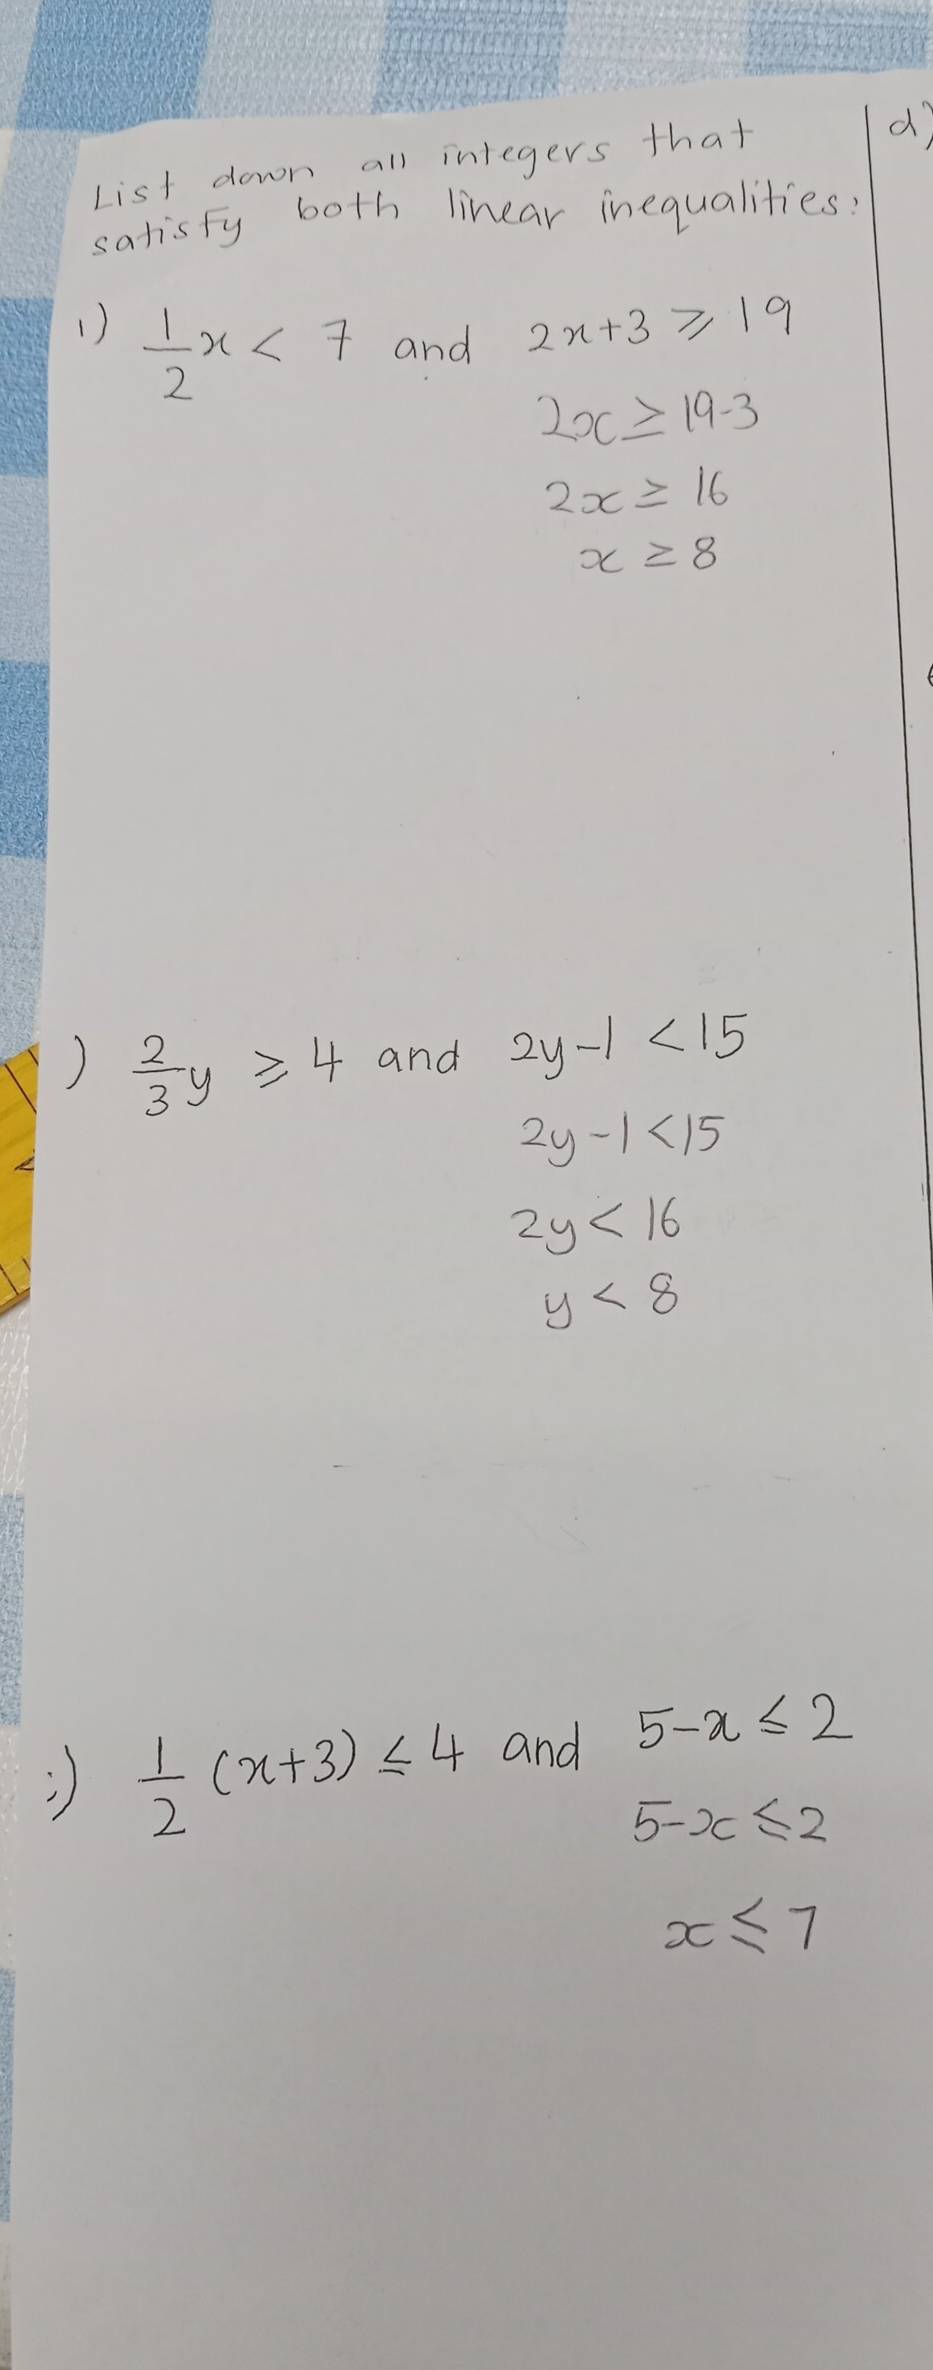 List down all integers that
satisfy both linear inequalities:
d)
1) 1/2 x < 7 and 2x+3 ⩾ 19
2x ≥ 19-3
2x ≥ 16
x ≥ 8
) 2/3 y ⩾ 4 and 2y-1 < 15
2y-1 < 15
2y < 16
y < 8
:) 1/2 (x+3) ≤ 4 and 5-x ≤ 2
5-x ⩽ 2
x ⩽ 7